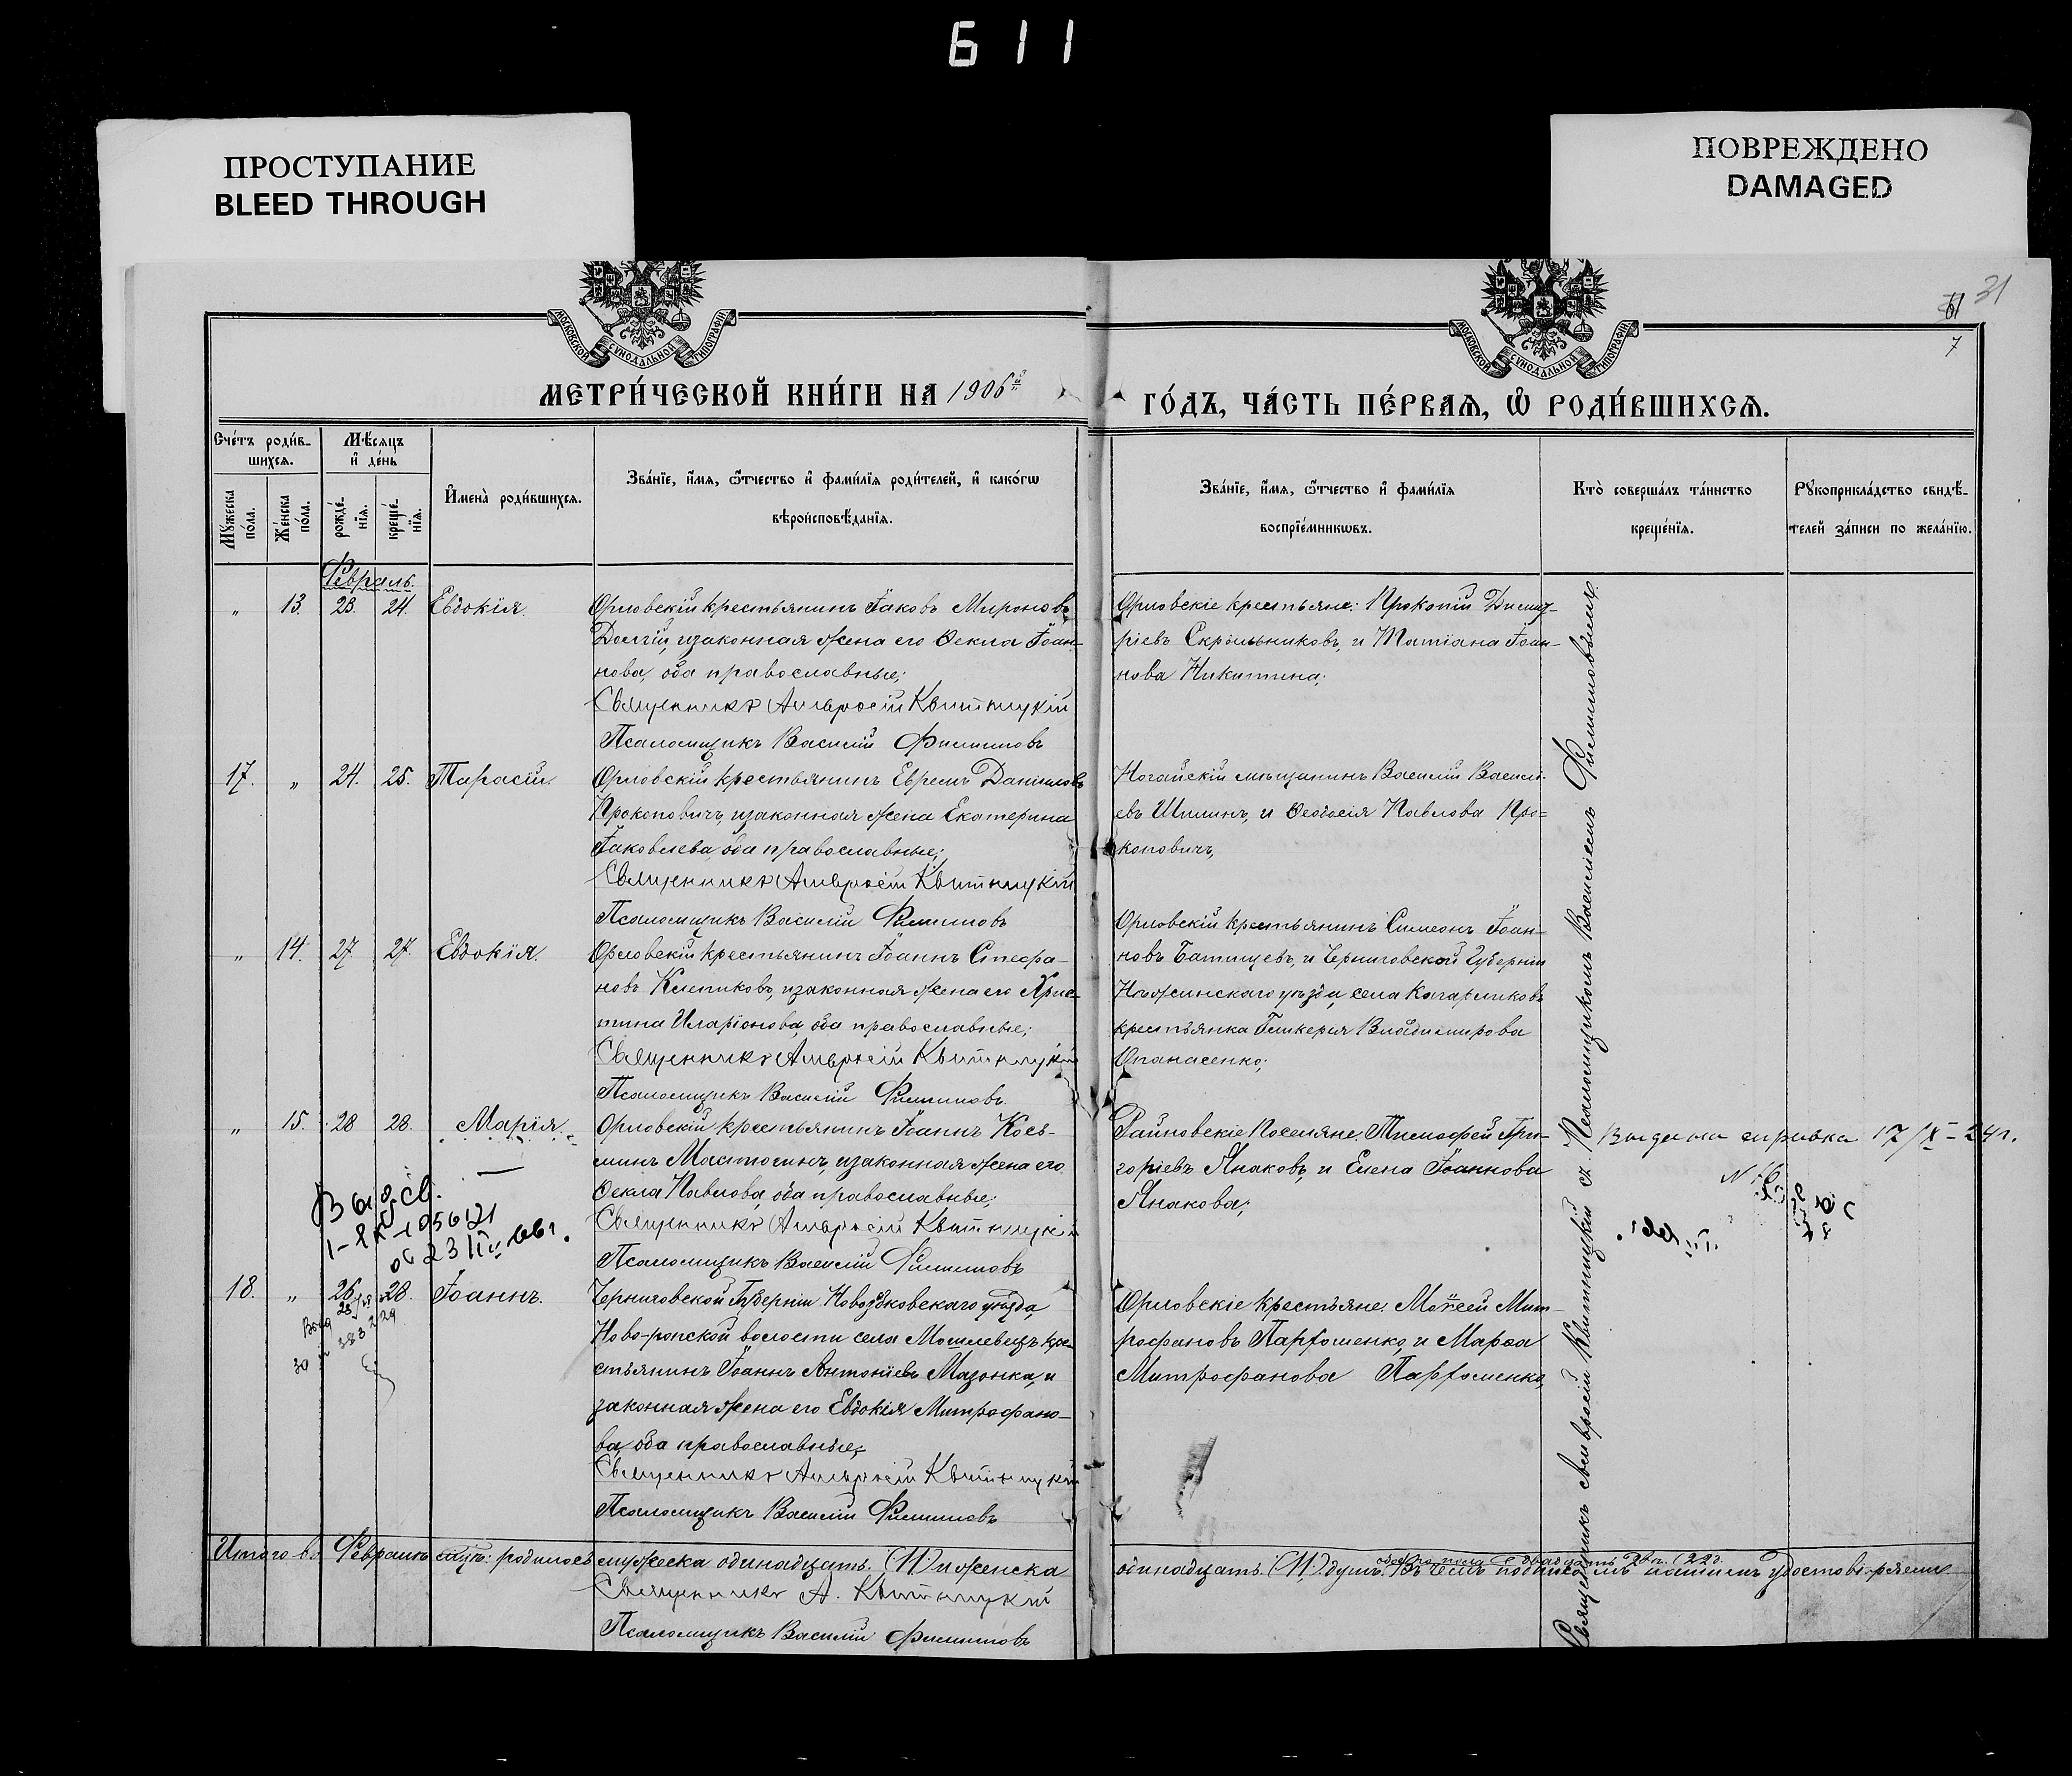 611
ПРОСТУПАНИЕ
BLEED THROUGH
ПОВРЕЖДЕНО
DAMAGED
31
7
МОСКОВСКОЙ СѴНОДАЛЬНОЙ ТИПОГРАФІИ
МОСКОВСКОЙ СѴНОДАЛЬНОЙ ТИПОГРАФІИ
МЕТРИ́ЧЕСКОЙ КНИ́ГИ НА 1906й
ГО́ДЪ, ЧА́СТЬ ПЕ́РВАѦ, Ѡ РОДИ́ВШИХСѦ.
Сче́тъ роди́в-
шихсѧ.
Мѣ́сѧцъ
и҆ де́нь
Мꙋ́жеска
по́ла.
Же́нска
по́ла.
рожде́-
нїѧ.
креще́-
нїѧ.
И҆мена̀ роди́вшихсѧ.
Зва́нїе, и҆́мѧ, ѻ҆́тчество и҆ фами́лїѧ роди́телей, и҆ како́гѡ
вѣроисповѣ́данїѧ.
Зва́нїе, и҆́мѧ, ѻ҆́тчество и҆ фами́лїѧ
воспрїе́мникѡвъ.
Кто̀ соверша́лъ та́инство
креще́нїѧ.
Рꙋкоприкла́дство свидѣ́-
телей за́писи по жела́нїю.
Февраль.
" 13. 23. 24. Евдокія.
Орловскій крестьянинъ Іаковъ Мироновъ
Долгій, изаконная жена его Ѳекла Іоан-
нова, оба православные;
Священникъ Амвросій Квитницкій
Псаломщикъ Василій Филиповъ
Орловскіе крестьяне: Прокопій Димит-
ріевъ Скрыльниковъ, и Татіана Іоан-
нова Никитина;
17. " 24. 25. Тарасій.
Орловскій крестьянинъ Ефремъ Даниловъ
Прокоповичъ, изаконная жена Екатерина
Іаковлева, оба православные;
Священникъ Амвросій Квитницкій
Псаломщикъ Василій Филиповъ
Ногайскій мѣщанинъ Василій Василі-
евъ Шилинъ, и Ѳеодосія Павлова Про-
коповичъ,
" 14. 27. 27. Евдокія.
Орловскій крестьянинъ Іоаннъ Стефа-
новъ Клепиковъ, изаконная жена его Хрис-
тина Иларіонова, оба православные;
Священникъ Амвросій Квитницкій
Псаломщикъ Василій Филиповъ.
Орловскій крестьянинъ Симеонъ Іоан-
новъ Батищевъ, и Черниговской Губерніи
Нѣжинскаго уѣзда, села
крестьянка Гликерія Владимирова
Опанасенко;
" 15. 28 28. Марія.
Орловскій крестьянинъ Іоаннъ Кось-
минъ изаконная жена его
Ѳекла Павлова, оба православные;
Священникъ Амвросій Квитницкій
Псаломщикъ Василій Филиповъ
Райновскіе Поселяне, Тимофей Гри-
горіевъ Янаковъ, и Елена Іоаннова
Янакова;
Выдана справка 17/X-24г.
18. " 26. 28. Іоаннъ.
Черниговской Губерніи Новозыбковскаго уѣзда,
Ново-ропской волости села кре-
стьянинъ Іоаннъ Антоніевъ Мазонка, и
законная жена его Евдокія Митрофано-
ва, оба православные;
Священникъ Амвросій Квитницкій
Псаломщикъ Василій Филиповъ
Орловскіе крестьяне, Моѵсей Мит-
рофановъ Парфоменко, и Марѳа
Митрофанова Парфоменко,
Священникъ Амвросій Квитницкій съ Псаломщикомъ Василіемъ Филиповымъ.
Итого въ Февралѣ родилось мужеска одинадцать (11) и женска
одинадцать (11) душъ. Въ чемъ подписомъ нашимъ удостовѣряемъ
обоего пола двадцать два (22)
Священникъ А. Квитницкій
Псаломщикъ Василій Филиповъ